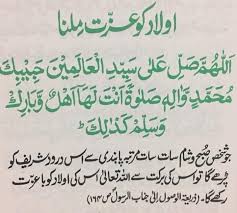 اولاد کو عزت ملنا
اَللّٰهُمَّ صَلِّ عَلٰى سَيِّدِ الْعَالَمِيْنَ حَبِيْبِكَ
مُحَمَّدٍ وَّاٰلِهٖ صَلٰوةً اَنْتَ لَهَا اَهْلٌ وَّبَارِكْ
وَسَلِّمْ كَذٰلِكَ
جو شخص صبح و شام سات سات مرتبہ پابندی سے اس درود شریف کو
پڑھے گا تو اس کی برکت سے اللہ تعالیٰ اس کی اولاد کو باعزت
رکھے گا۔ (ذریعۃ الوصول الی جناب الرسول ص ۱۶۴)